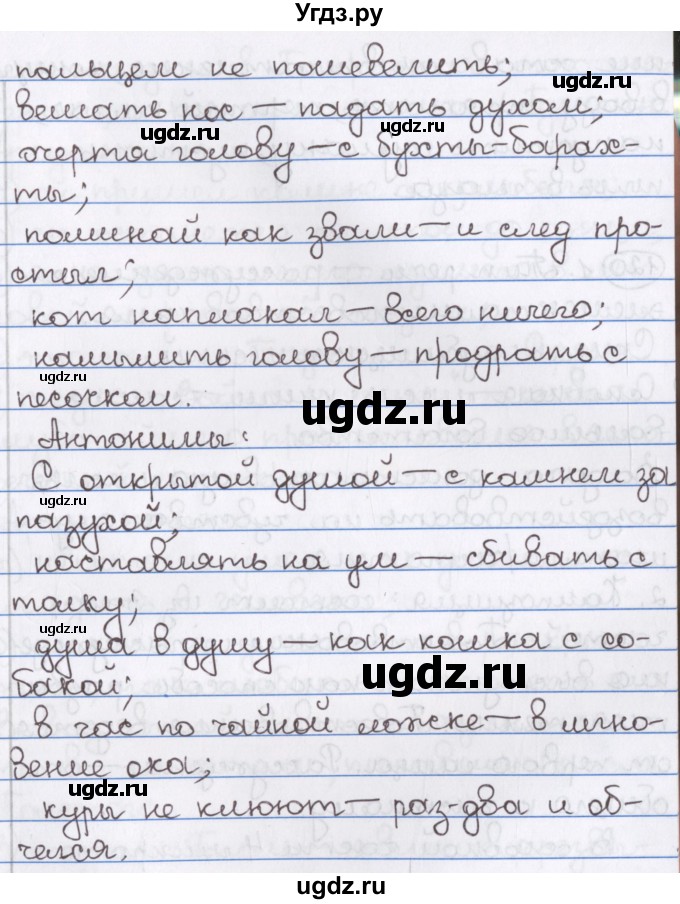 Угдз.ру
пальцем не пошевелить;
вешать нос – падать духом;
очертя голову – с бухты-барах-
ты;
поминай как звали – и след про-
стыл;
кот наплакал – всего ничего;
намылить голову – продрать с
песочком.
Антонимы:
С открытой душой – с камнем за
пазухой;
наставлять на ум – сбивать с
толку;
душа в душу – как кошка с со-
бакой;
в час по чайной ложке – в мгно-
вение ока;
куры не клюют – раз два и об-
чёлся.
ugdz.ru